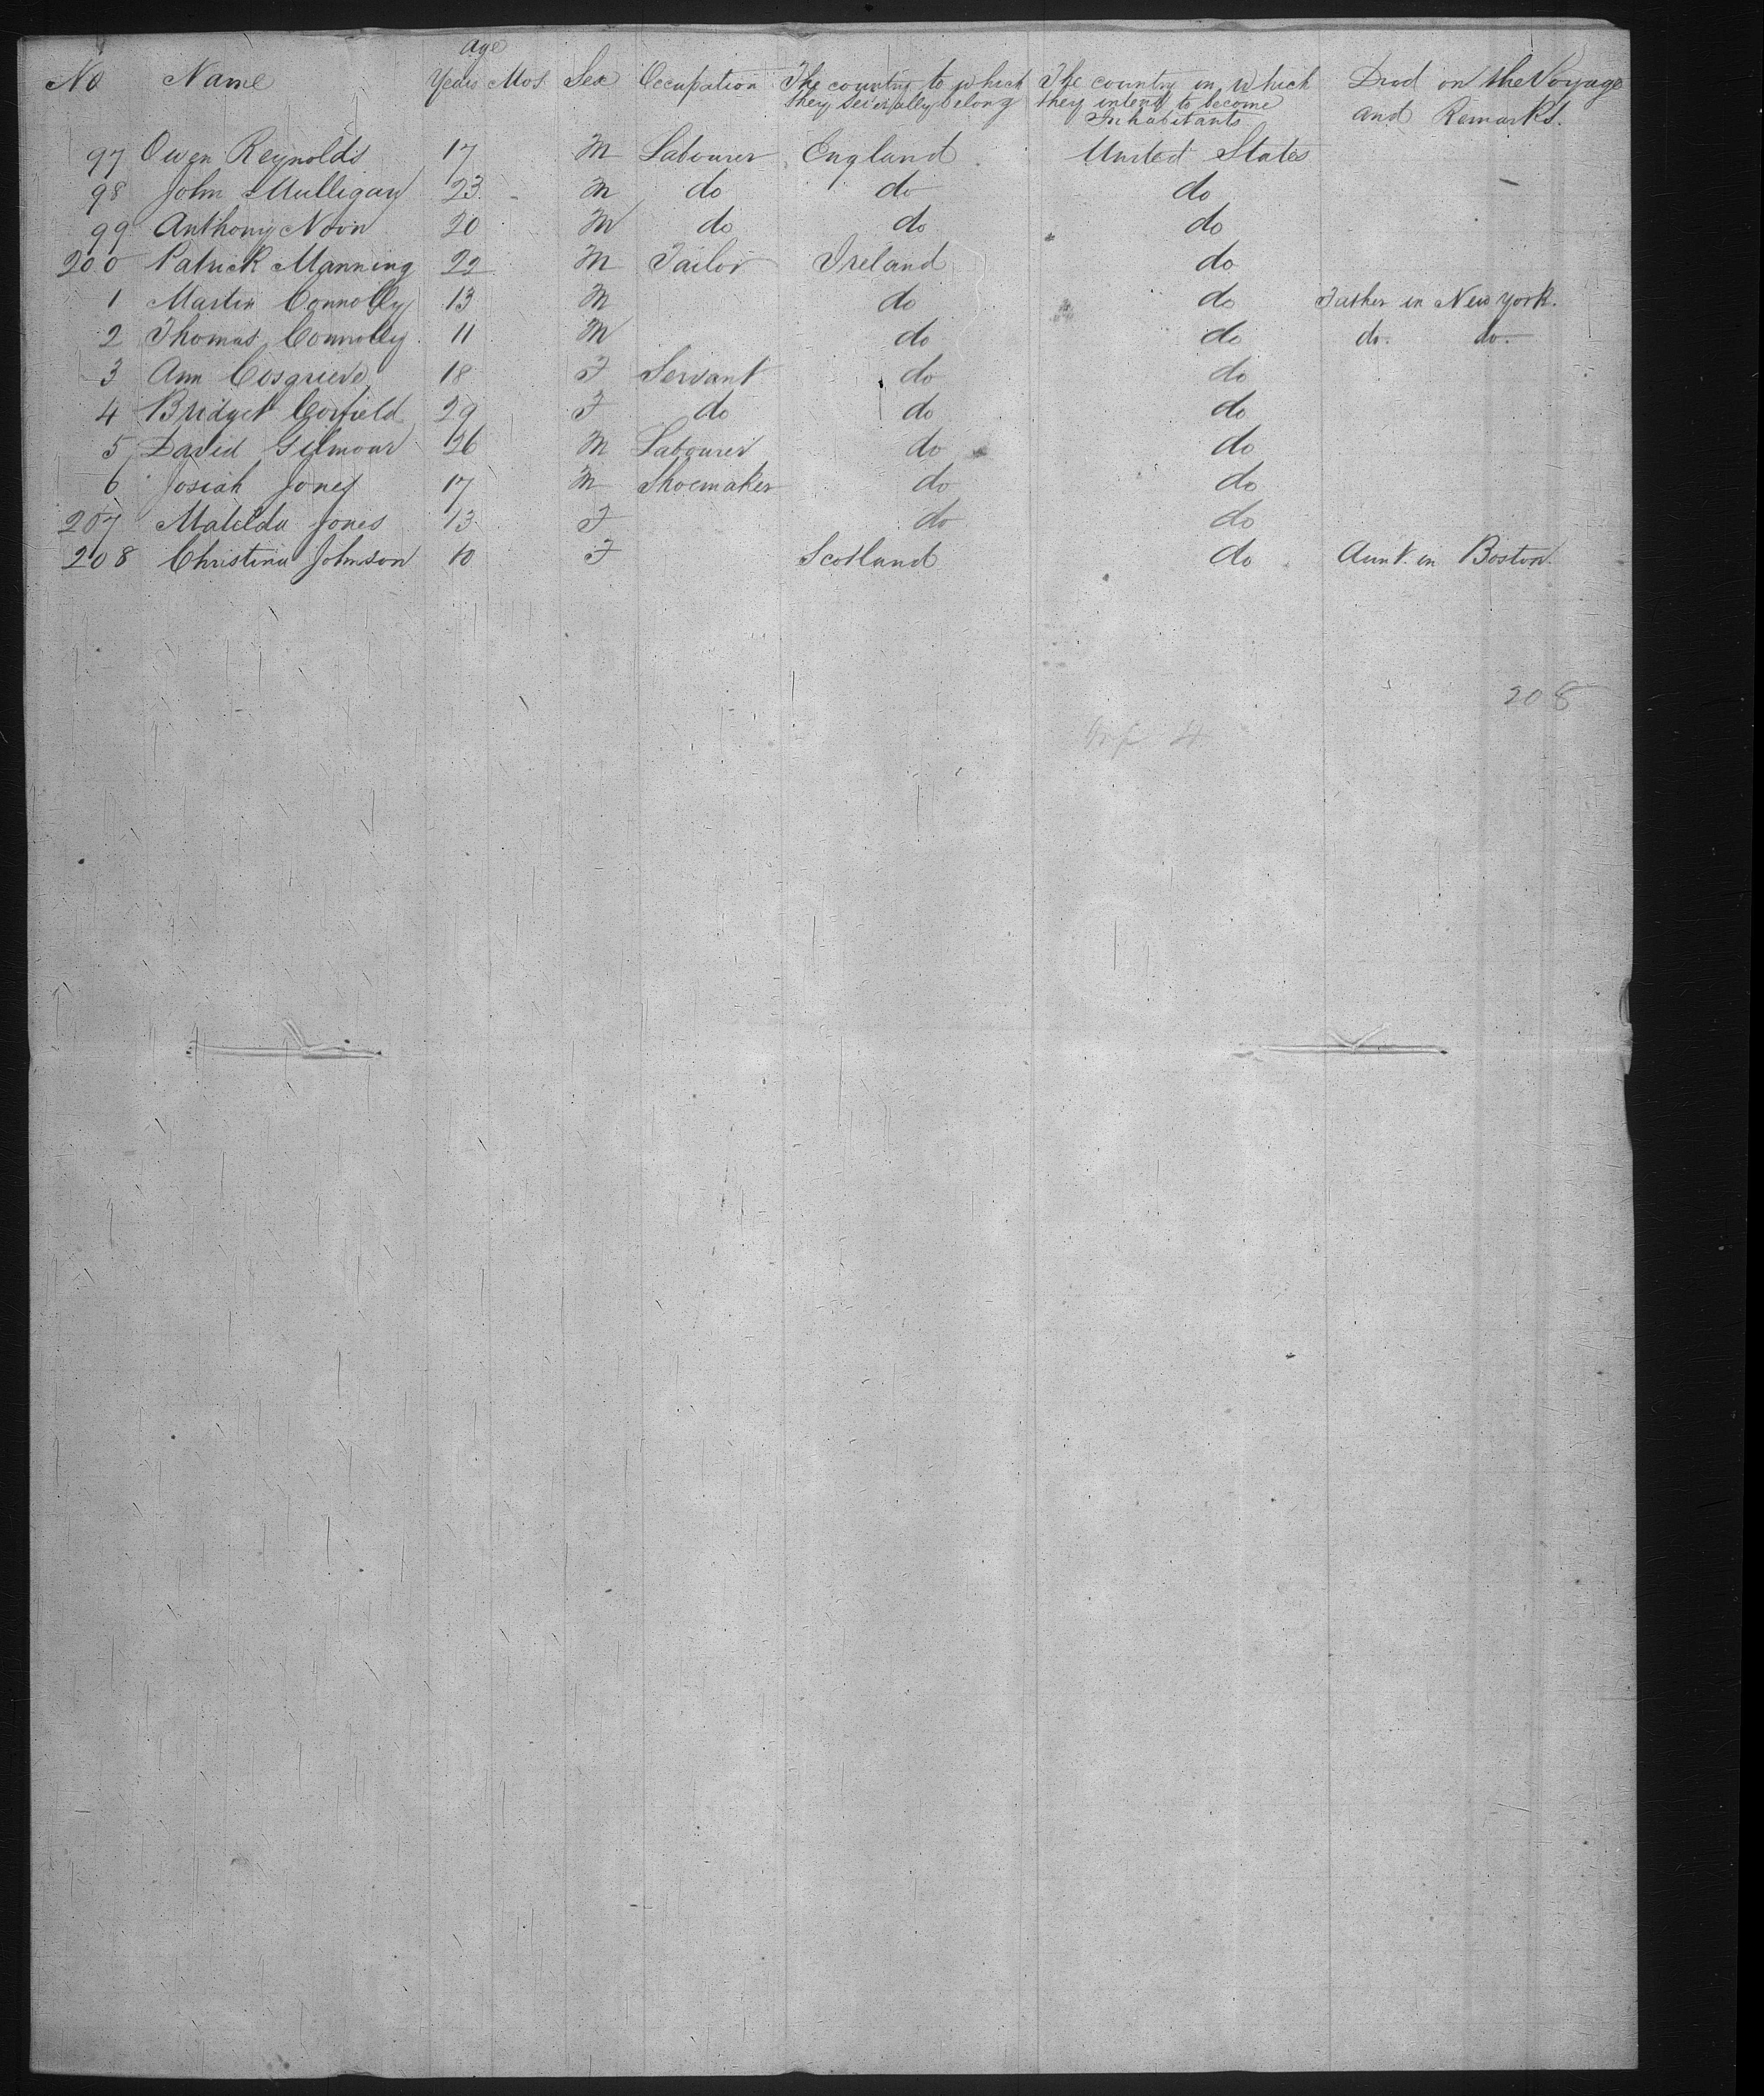 Age
No Name Years Mos. Sex Occupation The country to which they severally belong The country in which they intend to become Inhabitants Died on the Voyage and Remarks.
97 Owen Reynolds 17 M Labourer England United States
98 John Mulligan 23 M do do do
99 Anthony Noon 20 M do do do
200 Patrick Manning 22 M Tailor Ireland do
1 Martin Connolly 13 M do do Father in New York.
2 Thomas Connolly 11 M do do do. do.
3 Ann Cosgrieve 18 F Servant do do
4 Bridget Corfield 29 F do do do
5 David Gilmour 26 M Labourer do do
6 Josiah Jones 17 M Shoemaker do do
207 Matilda Jones 13 F do do
208 Christina Johnson 10 F Scotland do Aunt in Boston.
208
4